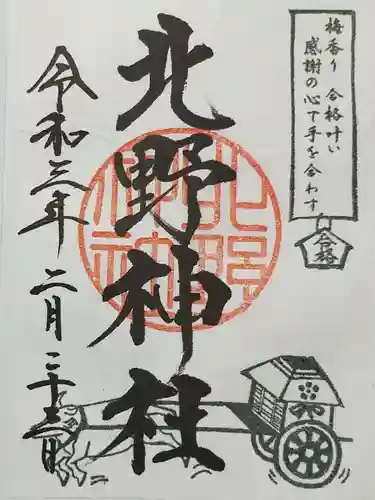 梅香り 合格叶い
感謝の心で手を合わす
合格
北野神社
北野神社
令和三年 二月二十三日